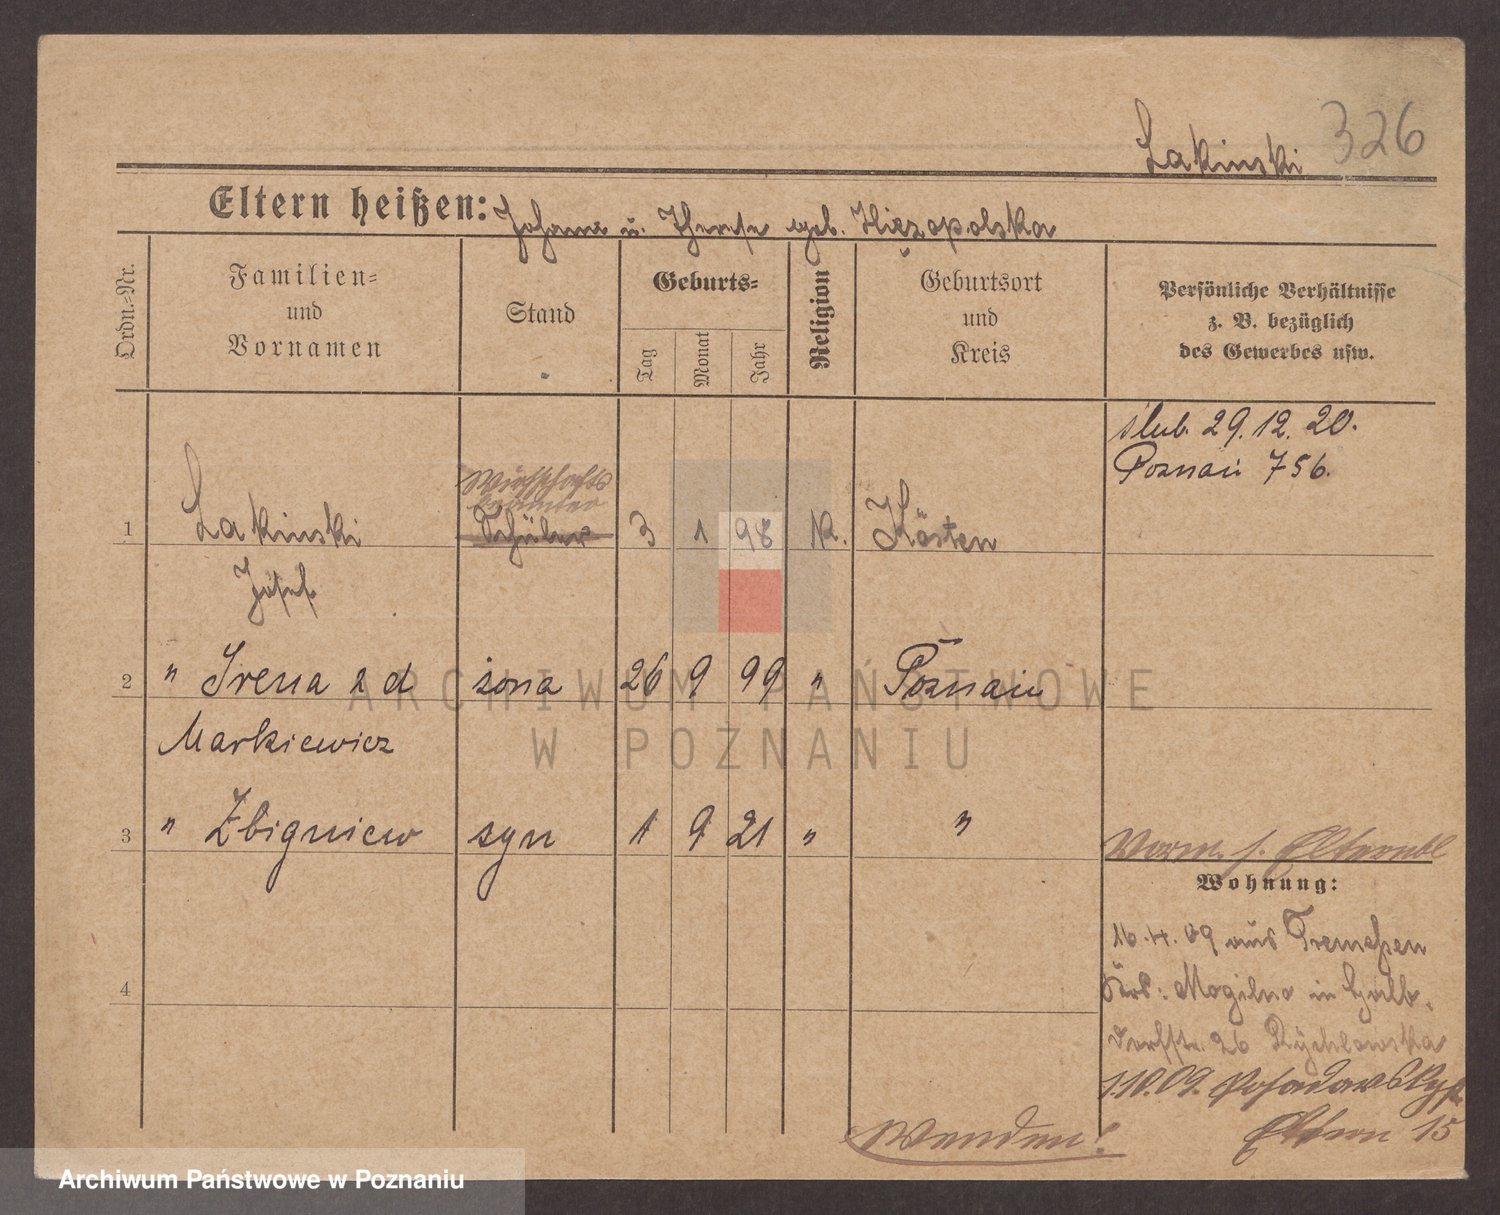 Lakinski 326
Eltern heißen: Johann u. Therese geb. Hiezopolska
Ordn.-Nr.
Familien-
und
Vornamen
Stand
Geburts-
Tag
Monat
Jahr
Religion
Geburtsort
und
Kreis
Persönliche Verhältnisse
z. B. bezüglich
des Gewerbes usw.
ślub. 29. 12. 20.
Poznań 756.
Wirtschafts
beamter
1 Lakinski Schüler 3 1 98 K. Kosten
Josef
2 " Irena z d żona 26 9 99 " Poznań
Markiewicz
3 " Zbigniew syn 1 9 21 " "
Vorm. s. Elternbl
Wohnung:
16.4.09 aus Tremessen
Krs: Mogilno in Halb-
dorfstr. 26 Rychlewska
1.10.09.
Eltern 15
4
Wenden!
ARCHIWUM PAŃSTWOWE
W POZNANIU
Archiwum Państwowe w Poznaniu